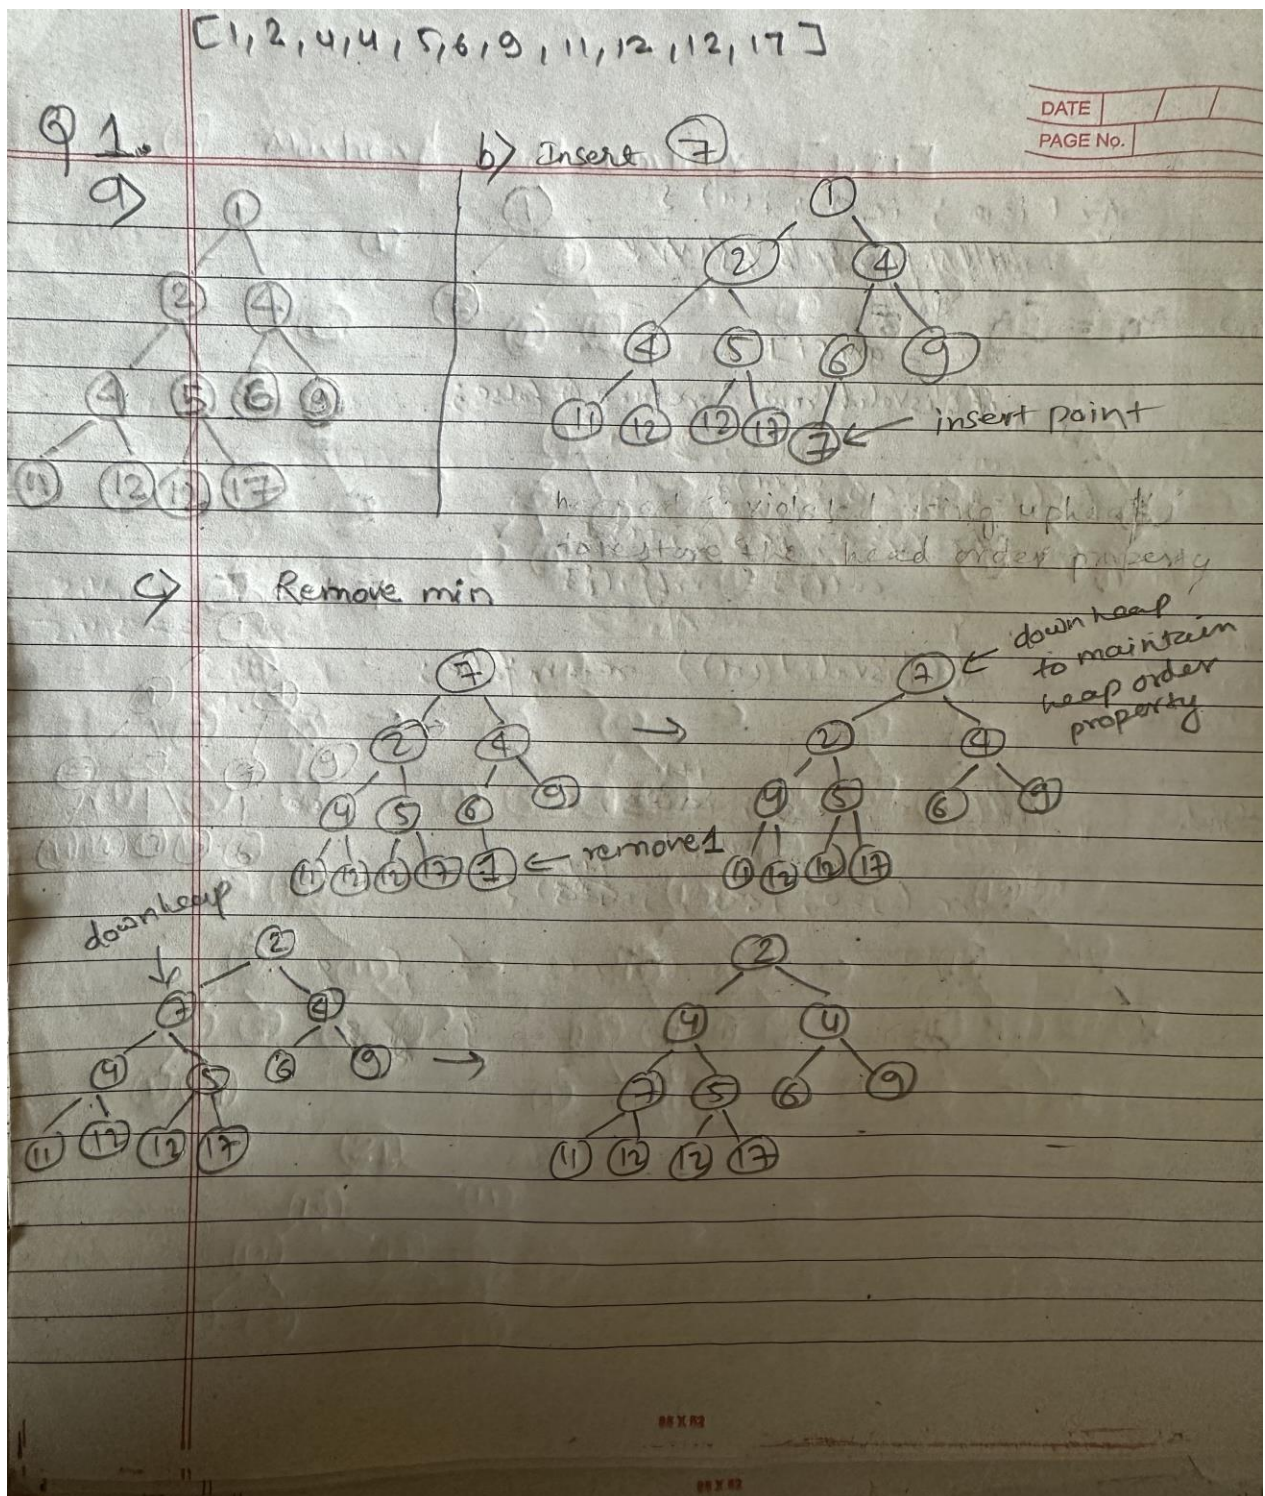 [1, 2, 4, 4, 5, 6, 9, 11, 12, 12, 17]
DATE
PAGE No.
Q 1.
a)
1
2 4
4 5 6 9
11 12 12 17
b) Insert 7
1
2 4
4 5 6 9
11 12 12 17 7 ← insert point
violated using upheap
to restore the head order property
c) Remove min
7
2 4
4 5 6 9
11 12 12 17 1 ← remove 1
→
7 ← down heap
to maintain
heap order
property
2 4
4 5 6 9
11 12 12 17
downheap
2
7 4
4 5 6 9
11 12 12 17
→
2
4 4
7 5 6 9
11 12 12 17